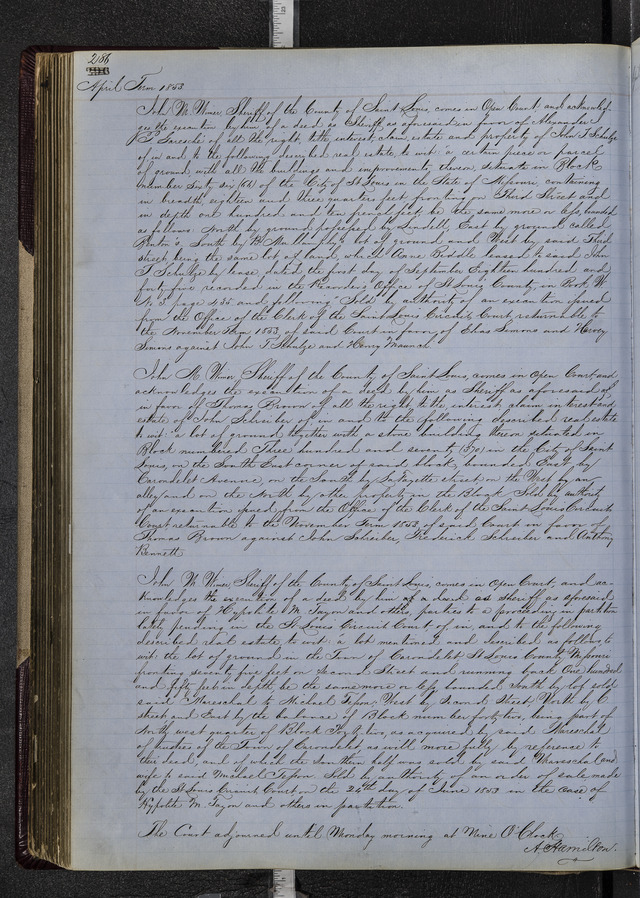 286
April Term 1853
John M. Wimer, Sheriff of the County of Saint Louis, comes in Open Court and acknowled-
ges the execution by him of a deed as Sheriff as aforesaid in favor of Alexander J
P. Garesche of all the right, title, interest, claim, estate and property of John T Schulze
of in and to the following described real estate, to wit: a certain piece or parcel
of ground, with all the buildings and improvements thereon, situate in Block
number Sixty six (66) of the City of St Louis in the State of Missouri, containing
in breadth eighteen and three quarters feet fronting on Third Street and
in depth one hundred and ten french feet, be the same more or less, bounded
as follows: North by ground possessed by Lindell, East by ground called
South by lot of ground and West by said Third
street, being the same lot of land, what Ann Biddle leased to said John
T Schulze by lease, dated the first day of September Eighteen hundred and
forty five recorded in the Recorder's Office of St Louis County, in Book W
No 3 page 435 and following. Sold by authority of an execution issued
from the Office of the Clerk of the Saint Louis Circuit Court, returnable to
the November Term 1853, of said Court in favor of Elias Simons and Harvey
Simons against John T Schulze and Henry Maunch
John M. Wimer, Sheriff of the County of Saint Louis, comes in Open Court and
acknowledges the execution of a deed by him as Sheriff as aforesaid of
in favor of Thomas Brown of all the right, title interest, claim interest and
estate of John Schreiber of in and to the following described real estate
to wit: a lot of ground together with a stone building thereon situated in
Block numbered Three hundred and seventy (370) in the City of Saint
Louis, on the South East corner of said block, bounded East by
Carondelet Avenue, on the South by Lafayette street on the West by an
alley and on the North by other property in the Block. Sold by authority
of an execution issued from the Office of the Clerk of the Saint Louis Circuit
Court returnable to the November Term 1853 of said Court in favor of
Thomas Brown against John Schreiber, Frederick Schreiber and Anthony
Bennett
John M. Wimer, Sheriff of the County of Saint Louis, comes in Open Court, and ac-
knowledges the execution of a deed by him of a deed as sheriff as aforesaid
in favor of Hypolite M. Tayon and other parties to a proceeding in partition
lately pending in the St Louis Circuit Court of in, and to the following
described real estate, to wit: a lot mentioned and described as follows, to
wit: the lot of ground in the Town of Carondelet St Louis County Missouri
fronting seventy five feet on Second Street and running back One hundred
and fifty feet in depth, be the same more or less, bounded South by lot sold
said Mareschal to Michael Tesson, West by Second Street, North by C
street, and East by the of Block number forty two, being part of
North west quarter of Block forty two, as acquired by said Mareschal
of trustees of the Town of Carondelet, as will more fully by reference to
their deed, and of which the Southern half was sold by said Mareschal and
wife to said Michael Tesson. Sold by authority of an order of sale made
by the St Louis Circuit Court on the 24th day of June 1853 in the case of
Hypolite M. Tayon and others in partition.
The Court adjourned until Monday morning at Nine O'Clock
A. Hamilton.